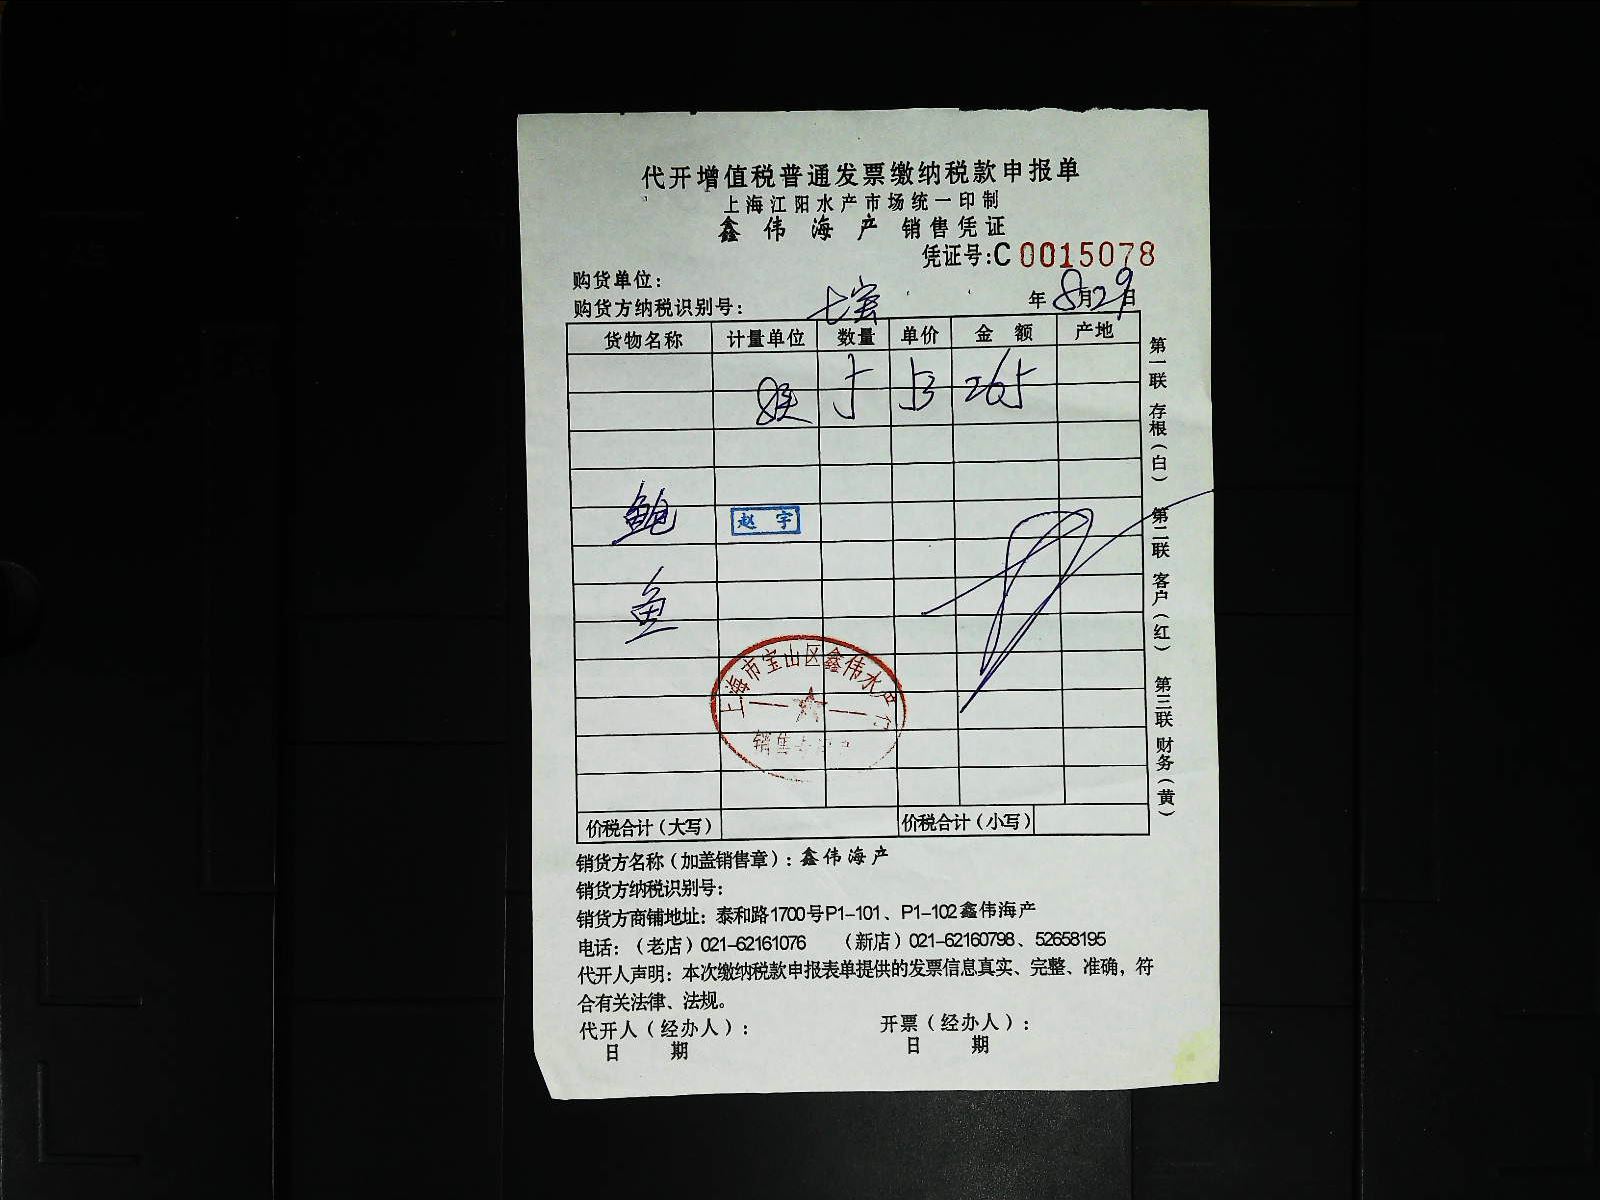 代开增值税普通发票缴纳税款申报单
上海江阳水产市场统一印制
鑫伟海产 销售凭证
凭证号:C 0015078
购货单位:
购货方纳税识别号: 七宝 年8月29日
货物名称 计量单位 数量 单价 金额 产地
5 53 265
鲍 赵宇
鱼
上海市宝山区鑫伟水产行
销售
价税合计（大写） 价税合计（小写）
第一联 存根（白） 第二联 客户（红） 第三联 财务（黄）
销货方名称（加盖销售章）: 鑫伟海产
销货方纳税识别号:
销货方商铺地址: 泰和路1700号P1-101、P1-102鑫伟海产
电话:（老店）021-62161076 （新店）021-62160798、52658195
代开人声明: 本次缴纳税款申报表单提供的发票信息真实、完整、准确，符
合有关法律、法规。
代开人（经办人）: 开票（经办人）:
日期 日期